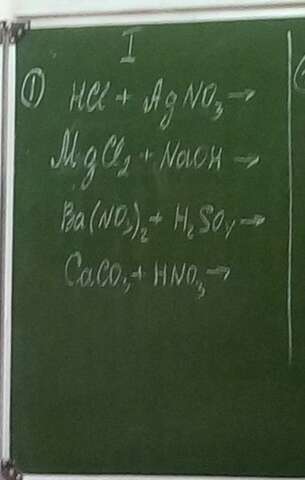 I
① HCl + AgNO₃ →
MgCl₂ + NaOH →
Ba(NO₃)₂ + H₂SO₄ →
CaCO₃ + HNO₃ →